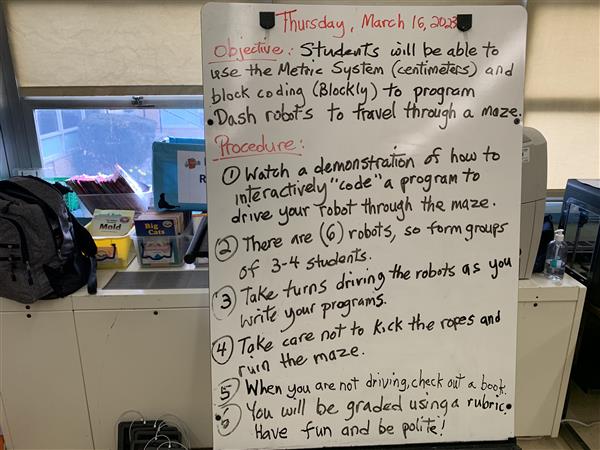 Thursday, March 16, 2023
Objective: Students will be able to
use the Metric System (centimeters) and
block coding (Blockly) to program
Dash robots to travel through a maze.
Procedure:
① Watch a demonstration of how to
interactively "code" a program to
drive your robot through the maze.
② There are (6) robots, so form groups
of 3-4 students.
③ Take turns driving the robots as you
write your programs.
④ Take care not to kick the ropes and
ruin the maze.
⑤ When you are not driving, check out a book.
⑥ You will be graded using a rubric.
Have fun and be polite!
Mold
Big
Cats
R